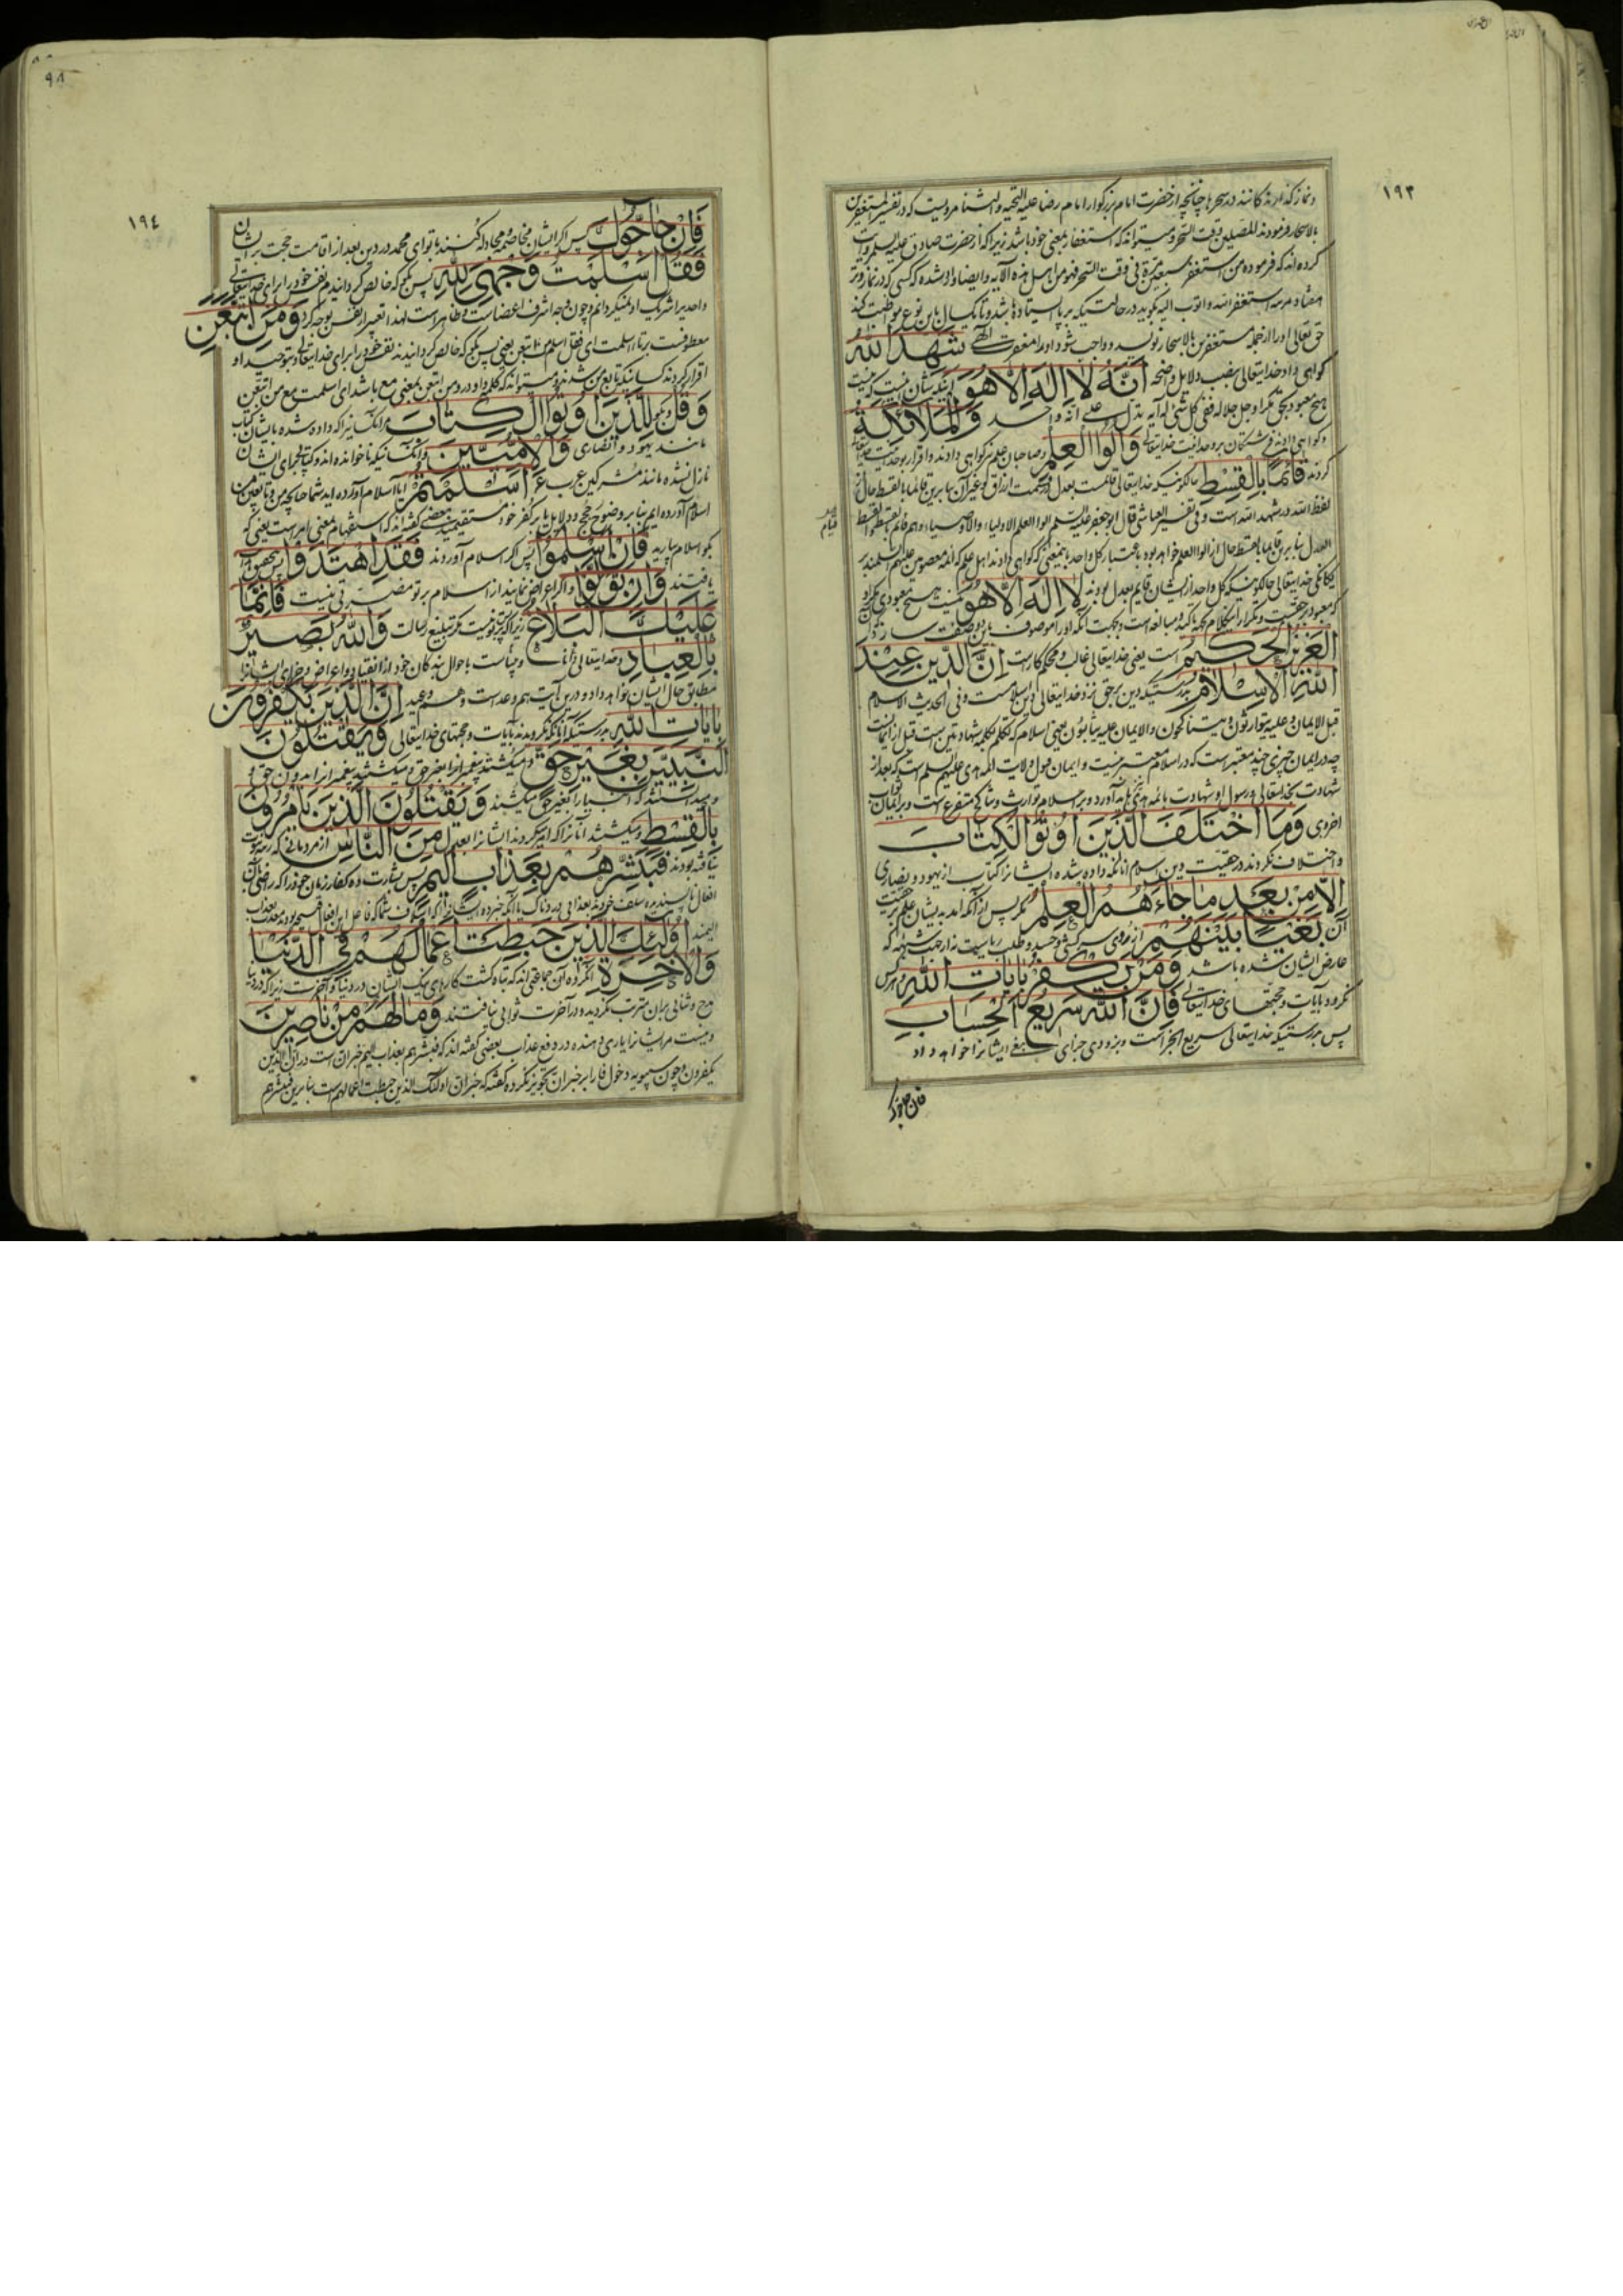 ١٩٣
و نماز گذارند در سحرها چنانچه از حضرت امام بزرگوار امام رضا علیه التحیه والثنا مرویست که در تفسیر المستغفرین
بالاسحار فرمودند المصلین وقت السحر و میتواند که استغفار بمعنی خود باشد زیرا که از حضرت صادق علیه السلم روایت
کرده اند که فرموده من استغفر سبعین مرة فی وقت السحر فهو من اهل هذه الآیه و ایضا وارد شده که کسی که در نماز وتر
هفتاد مرتبه استغفر الله و اتوب الیه بگوید در حالتیکه بر پا ایستاده باشد و تا یکسال باین نوع مواظبت کند
حق تعالی او را از جمله مستغفرین بالاسحار نویسد و واجب شود او را مغفرت الهی شَهِدَ اللهُ
گواهی داد خدایتعالی بنصب دلایل واضحه اَنَّهُ لَا اِلٰهَ اِلَّا هُوَ اینکه شان اینست که نیست
هیچ معبود بحق مگر او جل جلاله ففی کل شیء له آیه تدل علی انه واحد وَالْمَلَائِکَةُ
و گواهی دادند فرشتگان بر وحدانیت خدایتعالی وَاُولُوا الْعِلْمِ و صاحبان علم نیز گواهی دادند و اقرار بوحدانیت
کردند قَائِمًا بِالْقِسْطِ حالکونیکه خدایتعالی قائمست بعدل در قسمت ارزاق و غیر آن بنابرین قائما بالقسط حال از
لفظ الله در شهد الله است و فی تفسیر العیاشی قال ابو جعفر علیه السلم اولوا العلم الاولیاء والاوصیاء و هم قائم بالقسط والقسط
العدل بنابرین قائما بالقسط حال از اولوا العلم خواهد بود باعتبار کل واحد یا بمعنی که گواهی دادند اهل علم که ائمه معصومین علیهم السلمند بر
یگانگی خدایتعالی حالکونیکه کل واحد از ایشان قایم بعدل بودند لَا اِلٰهَ اِلَّا هُوَ نیست هیچ معبودی مگر او
که معبود بر حقیست و تکرار این کلام بجهة تاکید و مبالغه است و بجهت آنکه او را موصوف باین دو صفت سازد
الْعَزِیزُ الْحَکِیمُ است یعنی خدایتعالی غالب و محکم کارست اِنَّ الدِّینَ عِنْدَ
اللهِ الْاِسْلَامُ بدرستیکه دین بر حق نزد خدایتعالی دین اسلامست و فی الحدیث الاسلام
قبل الایمان و علیه یتوارثون و یتناکحون والایمان علیه یثابون یعنی اسلام که تکلم بکلمه شهادتین است قبل از ایمانست
چه در ایمان چیزی چند معتبر است که در اسلام معتبر نیست و ایمان قبول ولایت ائمه هدی علیهم السلم است که بعد از
شهادت بخدایتعالی و رسول او شهادت بائمه هدی باید آورد و بر اسلام توارث و تناکح متفرع است و بر ایمان ثواب
اخروی وَمَا اخْتَلَفَ الَّذِینَ اُوتُوا الْکِتَابَ
و اختلاف نکردند در حقیت دین اسلام آنانکه داده شده ایشانرا کتاب از یهود و نصاری
اِلَّا مِنْ بَعْدِ مَا جَاءَهُمُ الْعِلْمُ مگر پس از آنکه آمد بدیشان علم بر حقیت
آن بَغْیًا بَیْنَهُمْ از روی سرکشی و حسد و طلب ریاست نه از جهت شبهه که
عارض ایشان شده باشد وَمَنْ یَکْفُرْ بِاٰیَاتِ اللهِ و هر کس
نگرود بآیات و حجتهای خدایتعالی فَاِنَّ اللهَ سَرِیعُ الْحِسَابِ
پس بدرستیکه خدایتعالی سریع الجزاست و بزودی جزای ایشانرا خواهد داد
فان حاجوک
٩٨
١٩٤
فَاِنْ حَاجُّوکَ پس اگر ایشان مخاصمه و مجادله کنند با تو ای محمد در دین بعد از اقامت حجت بر ایشان
فَقُلْ اَسْلَمْتُ وَجْهِیَ لِلّٰهِ پس بگو که خالص گردانیدم نفس خود را برای خدایتعالی
واحد یرا شریک او نمیگردانم و چون وجه اشرف اعضاست و ظاهر است لهذا تعبیر از نفس بوجه کرد وَمَنِ اتَّبَعَنِ
معطوفست بر تا اسلمت ای فقل اسلم من اتبعن یعنی پس بگو که خالص گردانیدند نفس خود را برای خدایتعالی و بتوحید او
اقرار کردند کسانیکه تابع من شدند و میتواند که کلمه واو در و من اتبعن بمعنی مع باشد ای اسلمت مع من اتبعن
وَقُلْ لِلَّذِینَ اُوتُوا الْکِتَابَ و بگو مر آنکسانیرا که داده شده بایشان کتاب
مانند یهود و نصاری وَالْاُمِّیِّینَ و آنکسانیکه ناخوانده اند و کتابی برای ایشان
نازل نشده مانند مشرکین عرب ءَاَسْلَمْتُمْ ایا اسلام آورده اید شما چنانچه من و تابعین من
اسلام آورده ایم بنابر وضوح حجج و دلایل یا بر کفر خود مستقیمید بعضی گفته اند که استفهام بمعنی امر است یعنی که
بگو اسلام بیارید فَاِنْ اَسْلَمُوا پس اگر اسلام آوردند فَقَدِ اهْتَدَوْا بتحقیق راه
یافتند وَاِنْ تَوَلَّوْا و اگر اعراض نمایند از اسلام بر تو مضرتی نیست فَاِنَّمَا
عَلَیْکَ الْبَلَاغُ زیرا که بر تو نیست مگر تبلیغ رسالت وَاللهُ بَصِیرٌ
بِالْعِبَادِ و خدایتعالی دانا و بیناست باحوال بندگان خود از انقیاد و اعراض و جزای ایشانرا
مطابق حال ایشان خواهد داد و درین آیت هم وعد است و هم وعید اِنَّ الَّذِینَ یَکْفُرُونَ
بِاٰیَاتِ اللهِ بدرستیکه آنانکه نگرویدند بآیات و حجتهای خدایتعالی وَیَقْتُلُونَ
النَّبِیِّینَ بِغَیْرِ حَقٍّ و میکشتند پیغمبرانرا بغیر حق و میکشتند پیغمبرانرا بدون حق و
میدانستند که انبیا را بغیر حق میکشند وَیَقْتُلُونَ الَّذِینَ یَأْمُرُونَ
بِالْقِسْطِ و میکشتند آنانرا که امر میکردند ایشانرا بعدل مِنَ النَّاسِ از مردمانی که رتبه نبوت
نیافته بودند فَبَشِّرْهُمْ بِعَذَابٍ اَلِیمٍ پس بشارت ده کفار زمان خود را که راضی بآن
افعال ناپسندیده سلف خودند بعذابی دردناک یا آنکه خبر ده ایشانرا که اسلاف شما که فاعل این افعال قبیحه بودند معذب بعذاب
الیمند اُولٰئِکَ الَّذِینَ حَبِطَتْ اَعْمَالُهُمْ فِی الدُّنْیَا
وَالْاٰخِرَةِ آنگروه آن جماعتی اند که تباه گشت کارهای نیک ایشان در دنیا و آخرت زیرا که در دنیا
مدح و ثنایی بران مترتب نگردید و در آخرت ثوابی نیافتند وَمَا لَهُمْ مِنْ نَاصِرِینَ
و نیست مر ایشانرا یاری دهنده در دفع عذاب بعضی گفته اند که فبشرهم بعذاب الیم خبر ان است در ان الذین
یکفرون و چون سیبویه دخول فا را بر خبر ان تجویز نکرده گفته که خبر ان اولئک الذین حبطت اعمالهم است بنابرین فبشرهم